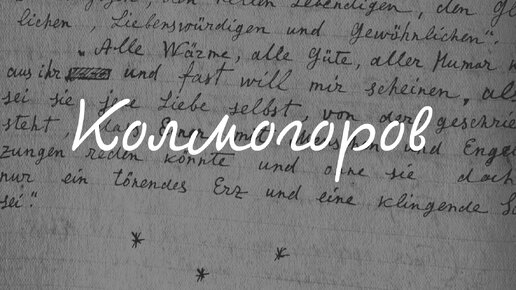 den hellen Lebendigen, den
lichen, Liebenswürdigen und Gewöhnlichen".
"Alle Wärme, alle Güte, aller Humor
aus ihr und fast will mir scheinen, als
sei sie jene Liebe selbst von der geschrie
steht, dass Einer mit und Enge
Колмогоров
zungen reden könnte und one sie doch
nur ein tönendes Erz und eine klingende
sei".
* * *